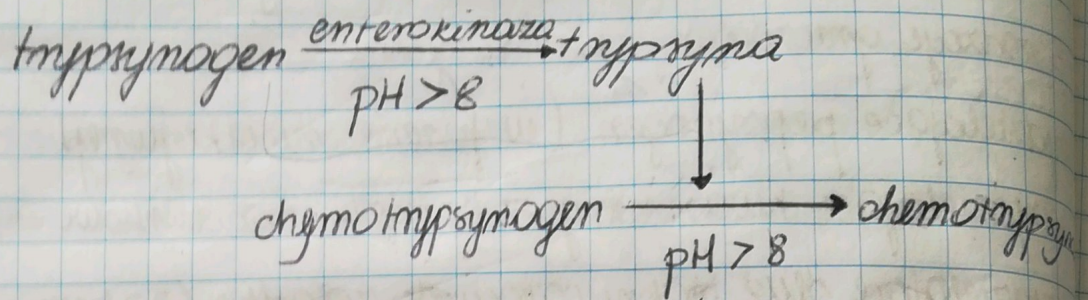 trypsynogen enterokinaza trypsyna
pH > 8
chymotrypsynogen chemotrypsy
pH > 8